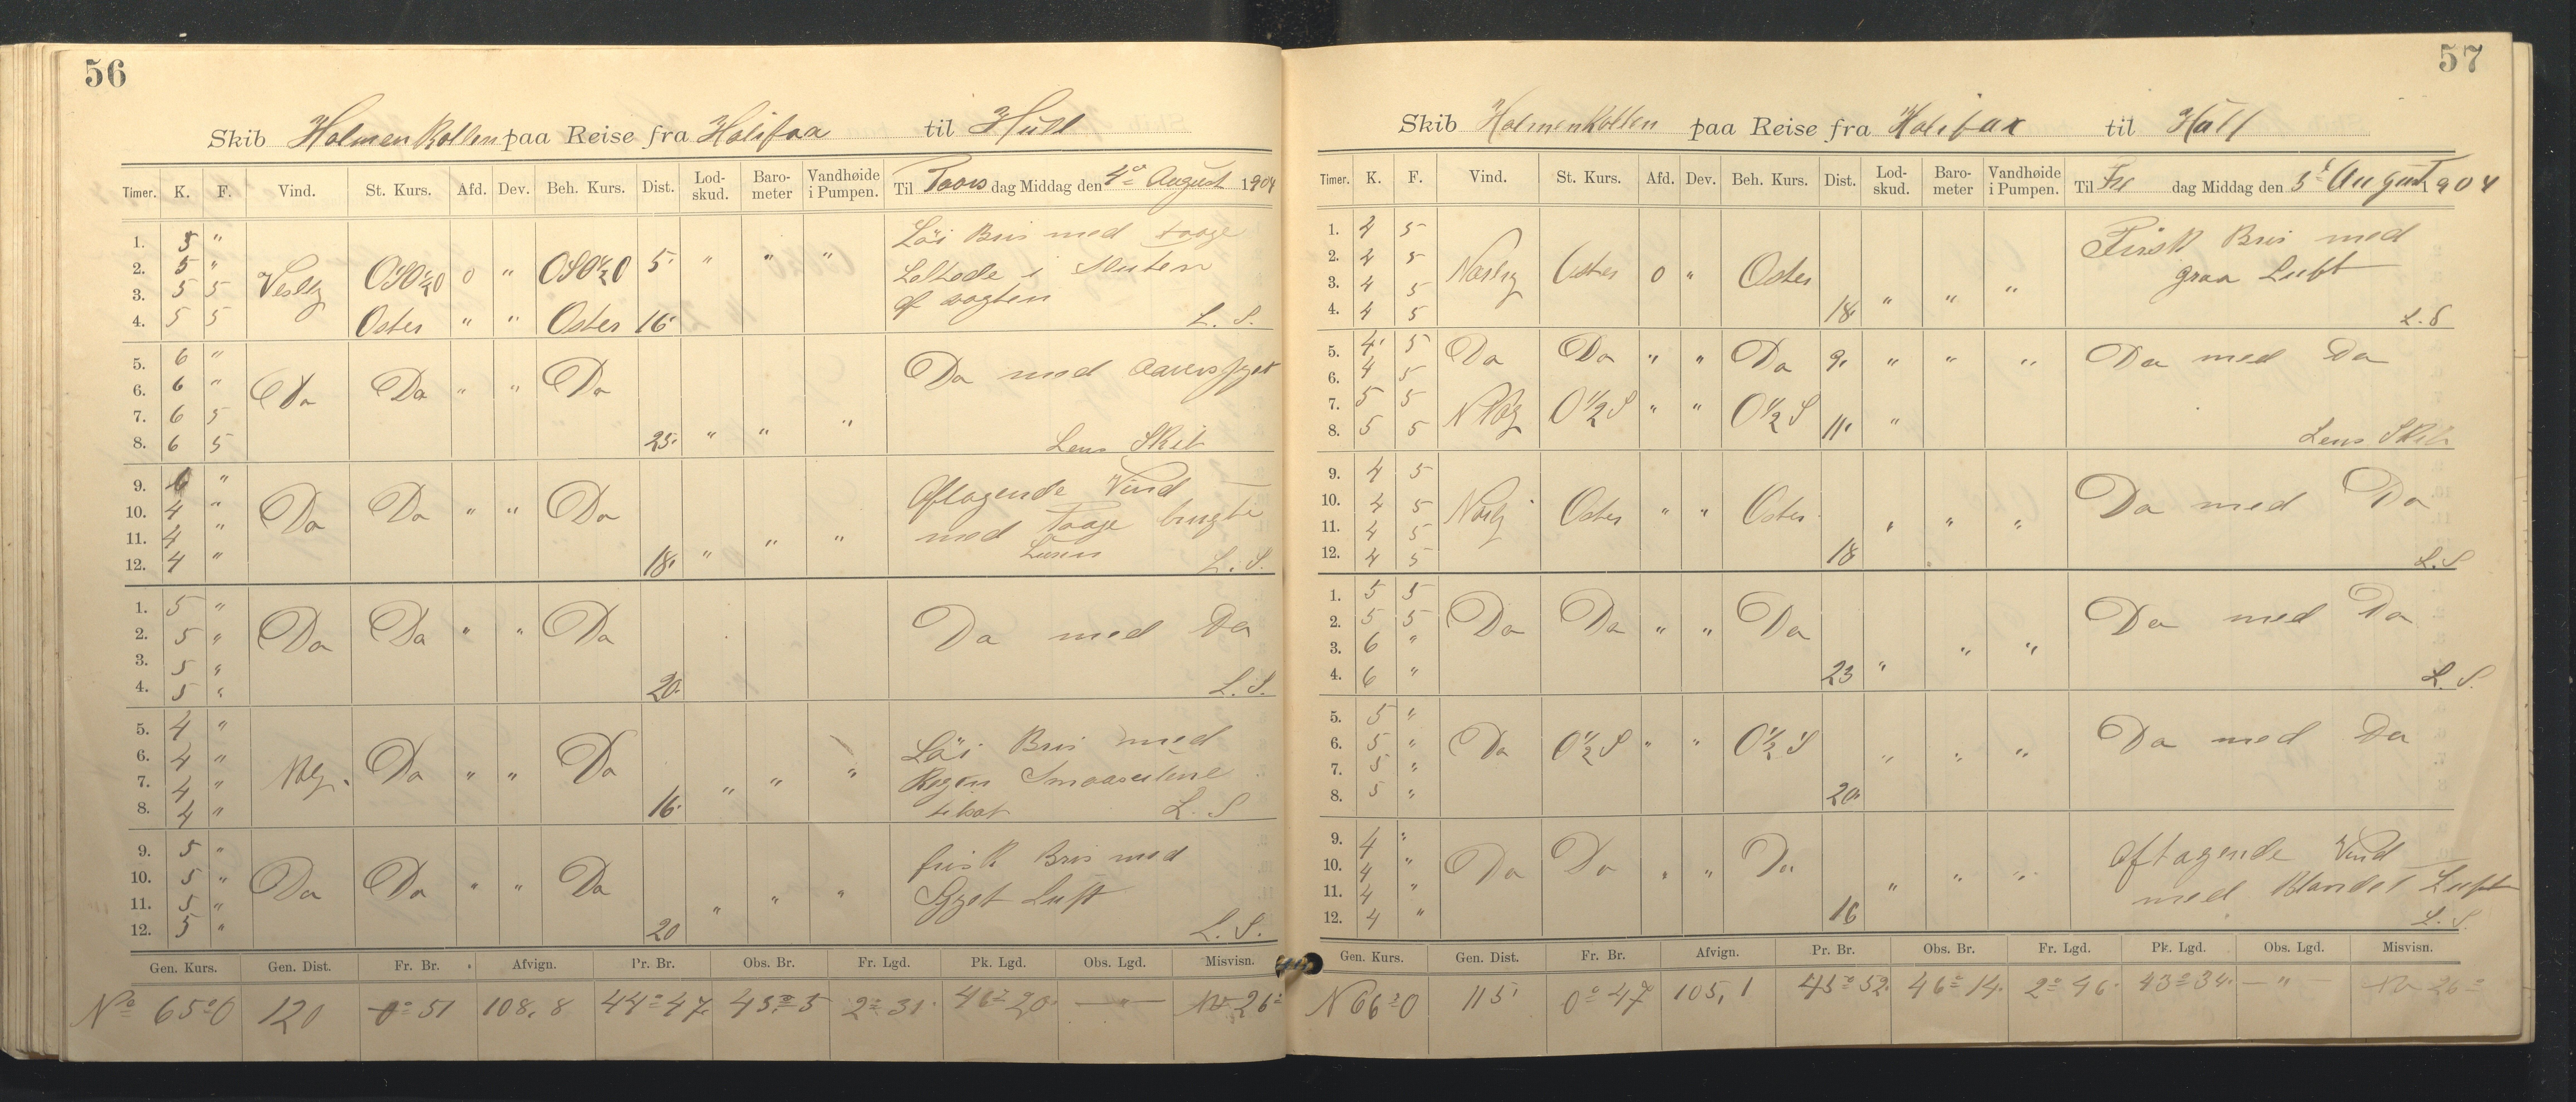 56
Skib HolmenKollen paa Reise fra Halifaa til Hull
Timer. K. F. Vind. St. Kurs. Afd. Dev. Beh. Kurs. Dist. Lod-skud. Baro-meter Vandhøide i Pumpen. Til Toors dag Middag den 4de August 1904
1. 5 " Løi Bris med taage
2. 5 " Vestlig OSO½O 0 " OSO½O 5 " " " Lettede i Slutten
3. 5 5 af vagten
4. 5 5 Oster " " Oster 16 L. S.
5. 6 "
6. 6 " Do Do " " Do Do med
7. 6 5
8. 6 5 25 " " " Lens Skib
9. 6 " Aftagende Vind
10. 4 " Do Do " " Do med Taage brugte
11. 4 " Luren
12. 4 " 18 " " " L. S.
1. 5 "
2. 5 " Do Do " " Do Do med Do
3. 5 "
4. 5 " 20 L. S.
5. 4 " Løi Bris med
6. 4 " Do " " Do Regn
7. 4 "
8. 4 " 16 " " " L. S
9. 5 " frisk Bris med
10. 5 " Do Do " " Do Luft
11. 5 "
12. 5 " 20 " " " L. S.
Gen. Kurs. Gen. Dist. Fr. Br. Afvign. Pr. Br. Obs. Br. Fr. Lgd. Pk. Lgd. Obs. Lgd. Misvisn.
No 65°O 120 0°51 108,8 44°47 45°5 2°31 46°20 — " — 26°
57
Skib HolmenKollen paa Reise fra Halifax til Hull
Timer. K. F. Vind. St. Kurs. Afd. Dev. Beh. Kurs. Dist. Lod-skud. Baro-meter Vandhøide i Pumpen. Til Fre dag Middag den 5te August 1904
1. 4 5 Frisk Bris med
2. 4 5 Oster 0 " Oster graa Luft
3. 4 5
4. 4 5 18 " " " L. S
5. 4 5 Do Do " " Do 9 " " " Do med Do
6. 4 5
7. 5 5 O½S " " O½S
8. 5 5 11 " Lens Skib
9. 4 5
10. 4 5 Oster " " Oster Do med Do
11. 4 5
12. 4 5 18 " " " L. S
1. 5 5
2. 5 5 Do Do " " Do Do med Do
3. 6 "
4. 6 " 23 " " " L. S.
5. 5 "
6. 5 " Do O½S " " O½S Do med Do
7. 5 "
8. 5 " 20 " " "
9. 4 " Aftagende Vind
10. 4 " Do Do " " Do med Blandet Luft
11. 4 "
12. 4 " 16 " " " L. S.
Gen. Kurs. Gen. Dist. Fr. Br. Afvign. Pr. Br. Obs. Br. Fr. Lgd. Pk. Lgd. Obs. Lgd. Misvisn.
N 66°O 115 0°47 105,1 45°52 46°14 2°46 43°34 — " — 26°